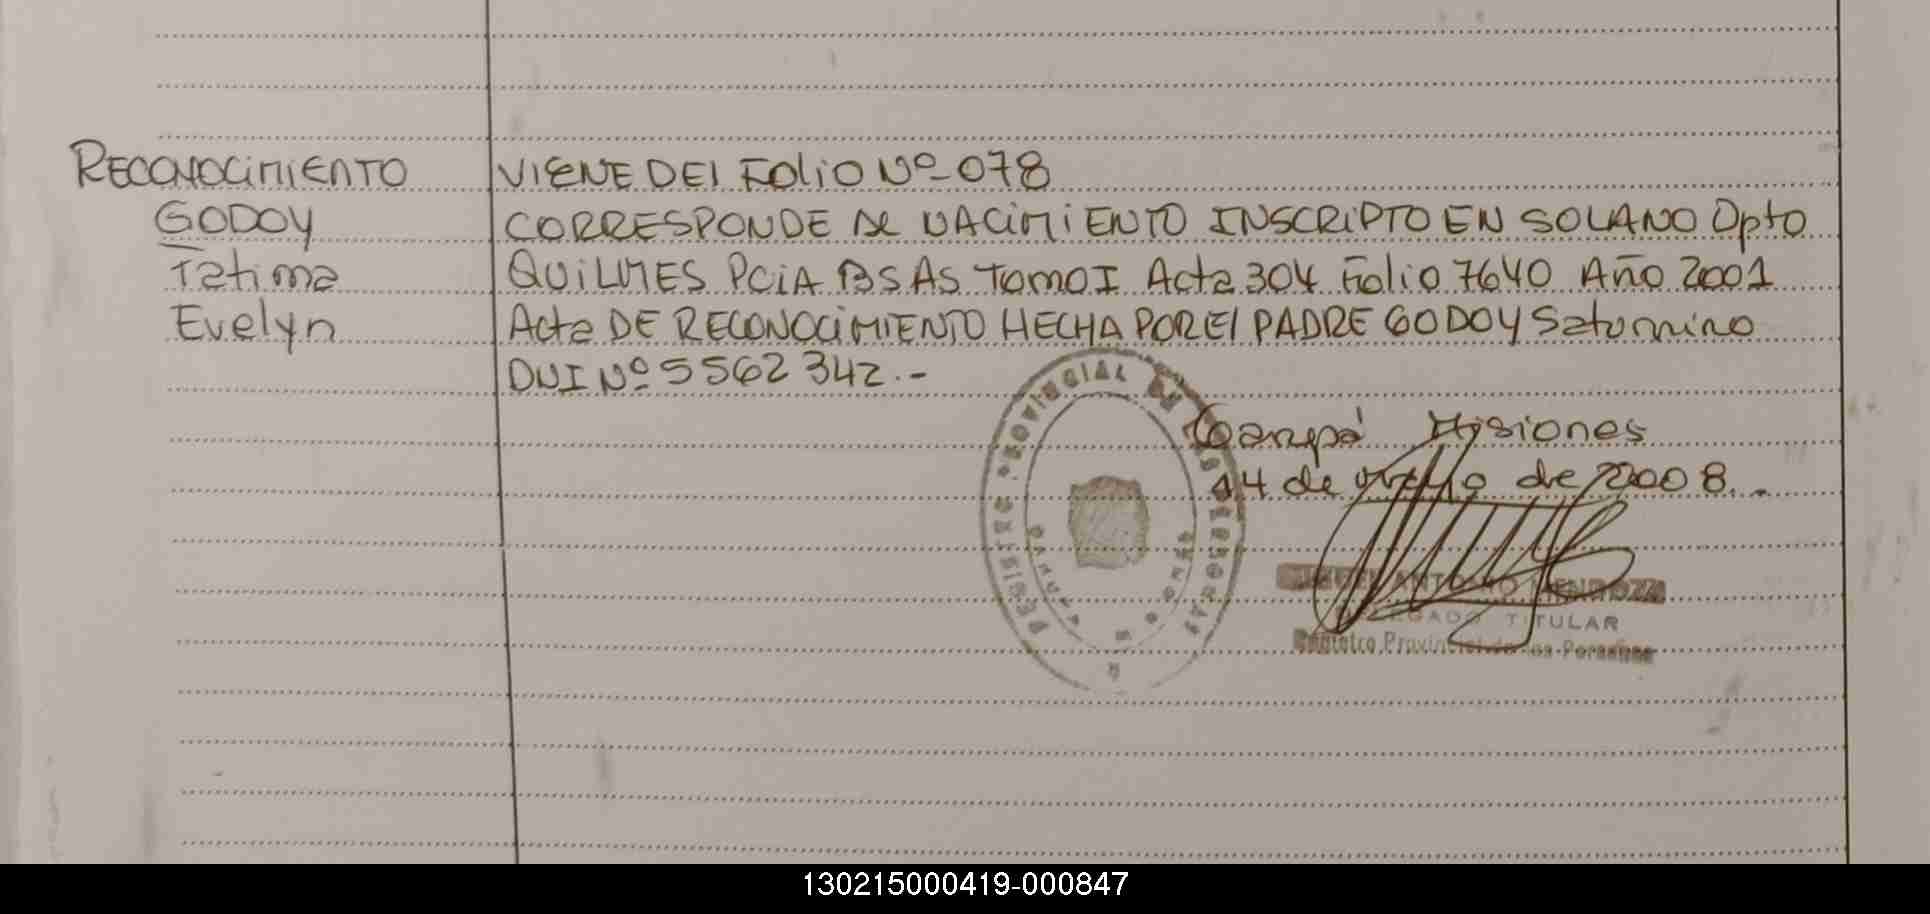 RECONOCIMIENTO VIENE DEl FOLIO Nº 078
GODOY CORRESPONDE AL NACIMIENTO INSCRIPTO EN SOLANO Dpto
Fatima QUILMES PCIA BS AS TOMO I Acta 304 Folio 7640 Año 2001
Evelyn Acta DE RECONOCIMIENTO HECHA POR El PADRE GODOY Saturnino
DNI Nº 5562342.-
Garupá Misiones
14 de de 2008.-
REGISTRO PROVINCIAL DE LAS PERSONAS
GARUPA
ANTONIO MENDOZA
DELEGADO TITULAR
Registro Provincial de las Personas
130215000419-000847